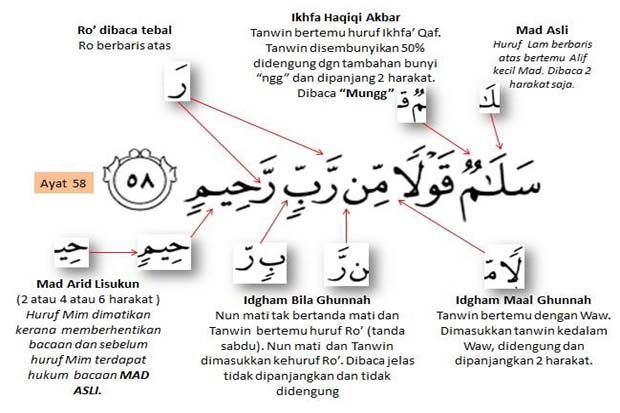 Ro’ dibaca tebal
Ro berbaris atas
رَ
Ikhfa Haqiqi Akbar
Tanwin bertemu huruf Ikhfa’ Qaf.
Tanwin disembunyikan 50%
didengung dgn tambahan bunyi
“ngg” dan dipanjang 2 harakat.
Dibaca “Mungg”
Mad Asli
Huruf Lam berbaris
atas bertemu Alif
kecil Mad. Dibaca 2
harakat saja.
Ayat 58
سَلَٰمٌ قَوْلًا مِّن رَّبٍّ رَّحِيمٍ ٥٨
حِيـ
حِيمٍ
بٍ رَّ
ن رَّ
لًا مِّ
Mad Arid Lisukun
(2 atau 4 atau 6 harakat )
Huruf Mim dimatikan
kerana memberhentikan
bacaan dan sebelum
huruf Mim terdapat
hukum bacaan MAD
ASLI.
Idgham Bila Ghunnah
Nun mati tak bertanda mati dan
Tanwin bertemu huruf Ro’ (tanda
sabdu). Nun mati dan Tanwin
dimasukkan kehuruf Ro’. Dibaca jelas
tidak dipanjangkan dan tidak
didengung
Idgham Maal Ghunnah
Tanwin bertemu dengan Waw.
Dimasukkan tanwin kedalam
Waw, didengung dan
dipanjangkan 2 harakat.